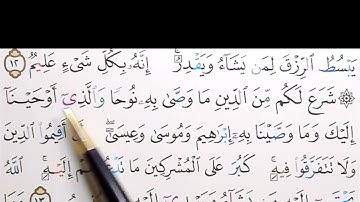 يَبْسُطُ الرِّزْقَ لِمَن يَشَآءُ وَيَقْدِرُ ۚ إِنَّهُۥ بِكُلِّ شَىْءٍ عَلِيمٌ ١٢
۞ شَرَعَ لَكُم مِّنَ الدِّينِ مَا وَصَّىٰ بِهِۦ نُوحًا وَالَّذِىٓ أَوْحَيْنَآ
إِلَيْكَ وَمَا وَصَّيْنَا بِهِۦٓ إِبْرَٰهِيمَ وَمُوسَىٰ وَعِيسَىٰٓ أَنْ أَقِيمُوا الدِّينَ
وَلَا تَتَفَرَّقُوا فِيهِ ۚ كَبُرَ عَلَى الْمُشْرِكِينَ مَا تَدْعُوهُمْ إِلَيْهِ ۚ اللَّهُ
إِلَيْهِ ١٣